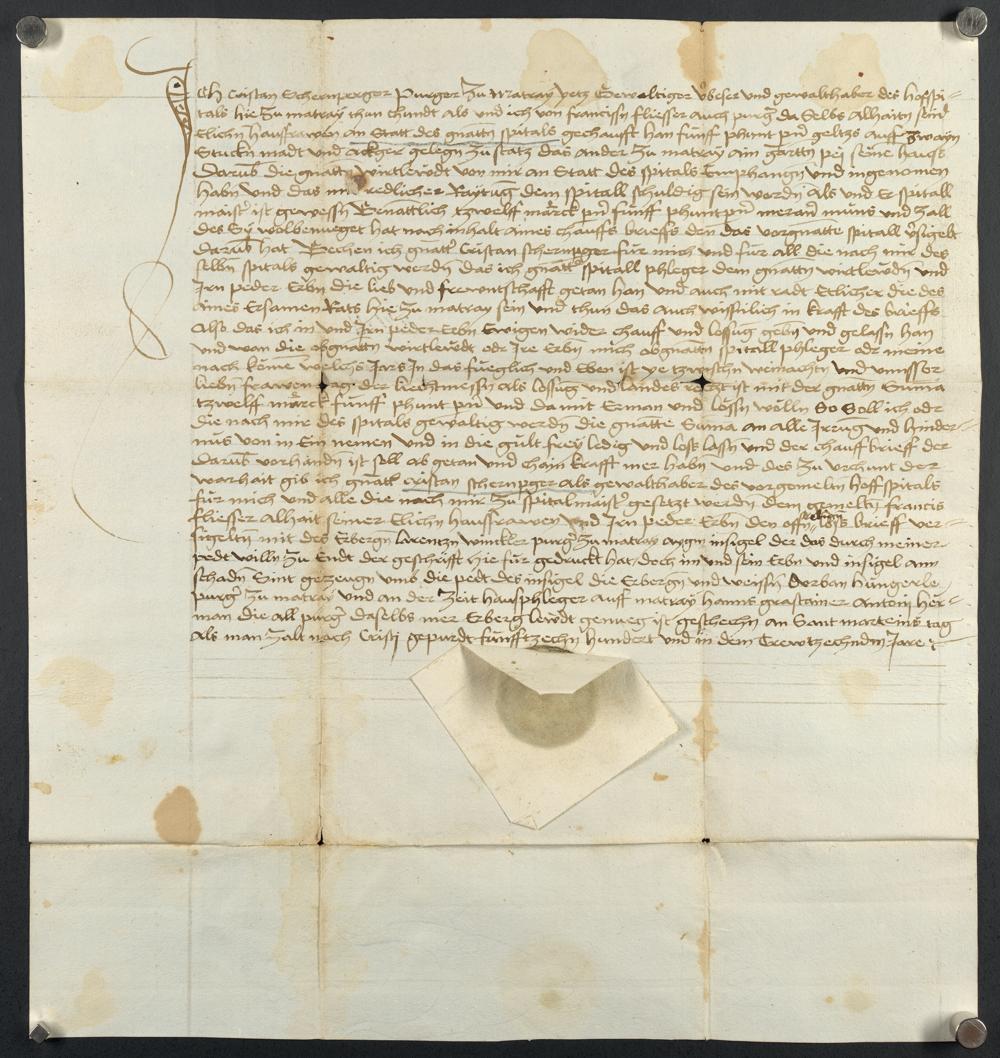 Ich Cristan Schernperger Purger zu Matray yetz Gewaltiger vbeser und gewalthaber des hofspi-
tals hie zu matray thun chundt als und ich von francissn fliesser auch purgr da Selbs Allhaitn seinr
Elichn haussfrawen an Statt des gnattn spitals gechaufft han funff phunt prnr geltzs auff zwayn
Stuckn madt und ackger gelegn zu statz das ander zu matray ain gartn pey seine hawss
darub die gnattn wirtlewdt von mir an Statt des spitals Emphangn und ingenomen
habn und das mir redlicher Raytug dem spitall schuldig sein wordn als und Er spitall
maistr ist gewessn Benattlich tzwelff marck prnr funff phunt prnr meranr muns und zall
des Sy wolbenueget hat nach inhalt aines chauffs brieffs den das vorgnatte spitall vsigelt
darub hat Bechen ich gnattr Cristan schernpger fur mich und fur all die nach mir des
selbn spitals gewaltig werdn das ich gnattr spitall phleger dem gnattn wirtlewdn und
Irn peder Erbn die lieb und frewntschafft getan han und auch mit radt Etlicher die des
Aines Ersamen Rats hie zu matray sein und thun das auch wissnlich in krafft des brieffs
Also das ich in und Irn peder Erbn Ewigen wider chauff und lossug gebn und gelassn han
und wan die obgnattn wirtlewdt odr Ire Erbn mich obgnattn spitall phleger odr meine
nach kome welchs Jars In das fueglich und Eben ist ye tzwischn weinachtn und unsser
liebn frawen tag der liechtmessn als lossug und landes recht ist mit der gnattn Suma
tzwelff marck funff phunt prnr und da mit Erman und lossn welln So Soll ich odr
die nach mir des spitals gewaltig werdn die gnatte Suma an alle Irrug und hinder-
nus von in Ein nemen und in die gult frey ledig und loss lassn und der chauff brieff der
darub vorhandn ist soll ab getan und chain krafft mer habn und des zu urchunt der
warhait gib ich gnattr cristan schernpger als gewalthaber des vorgemeltn hoffspitals
fur mich und alle die nach mir zu spitalmaistr gesetzt werdn dem gemeltn francis
fliesser Alhait seiner Elichn haussfrawen und Irn peder Erbn den offn brieff ver-
sigeltn mit des Erbergn Lorentzn winckler purgr zu matray aygn insigel der das durch meiner
pedt willn zu Endt der geschrifft hie fur gedruckt hat doch im und sein Erbn und insigel ann
schadn Sint getzeugn umb die pedt des insigel die Erbergn und weissn Vorban hungerle
purgr zu matray und an der zeit hausphleger auff matray hanns grastainer antonj her-
man die all purgr daselbs mer Erberg lewdt genueg ist geschechn an Sant marteins tag
Als man zalt nach Cristj gepurdt funfftzechn hundert und in dem Drewtzechndn Jare